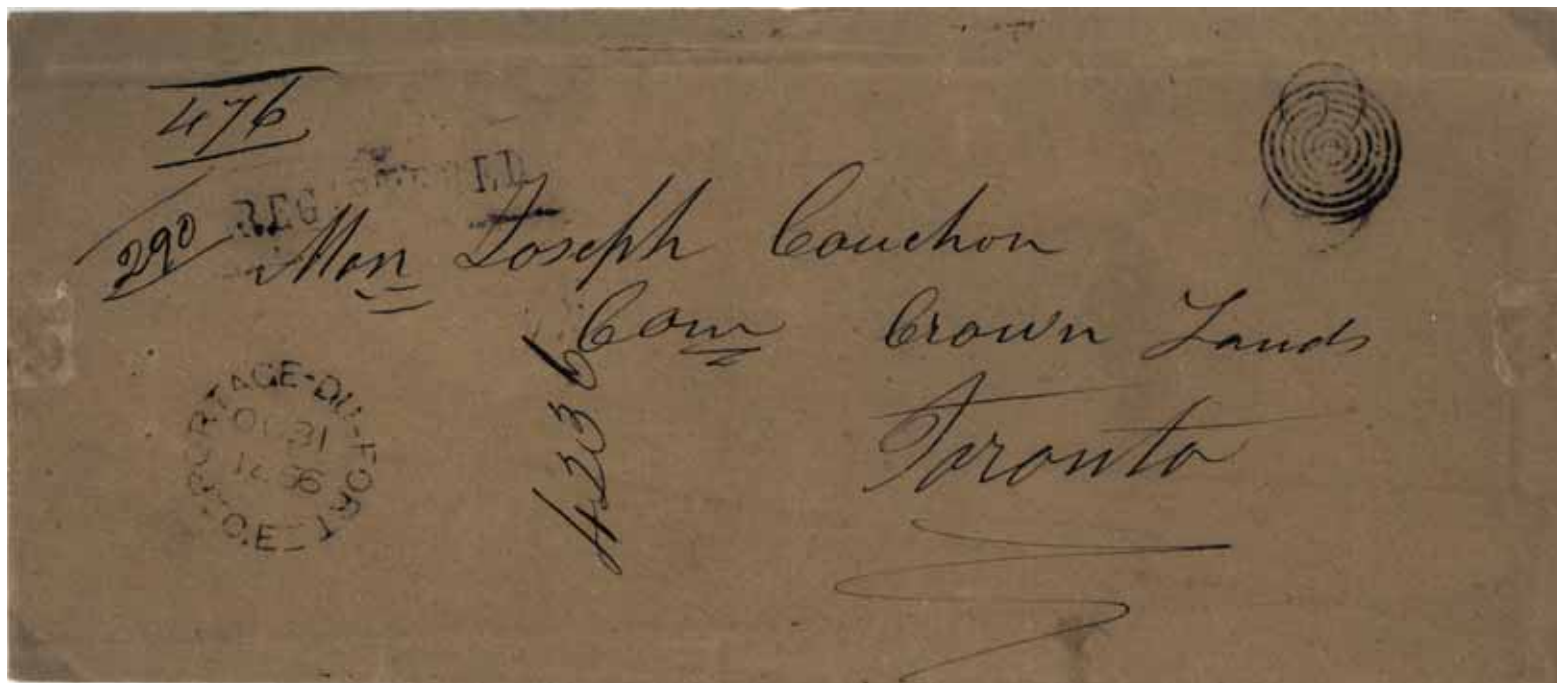 476
290
REGISTERED
Hon Joseph Cauchon
Com Crown Lands
Toronto
4236
PORTAGE-DU-FORT C.E
OC 31
1856